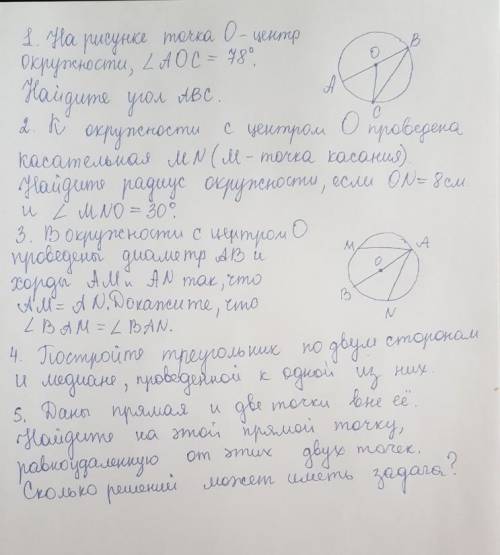 1. На рисунке точка О - центр
окружности, ∠AOC = 78°.
Найдите угол ABC.
O
B
A
C
2. К окружности с центром О проведена
касательная MN (M - точка касания)
Найдите радиус окружности, если ON = 8см
и ∠ MNO = 30°.
3. В окружности с центром О
проведены диаметр AB и
хорды AM и AN так, что
AM = AN. Докажите, что
∠BAM = ∠BAN.
M
A
O
B
N
4. Постройте треугольник по двум сторонам
и медиане, проведённой к одной из них.
5. Даны прямая и две точки вне её.
Найдите на этой прямой точку,
равноудаленную от этих двух точек.
Сколько решений может иметь задача?